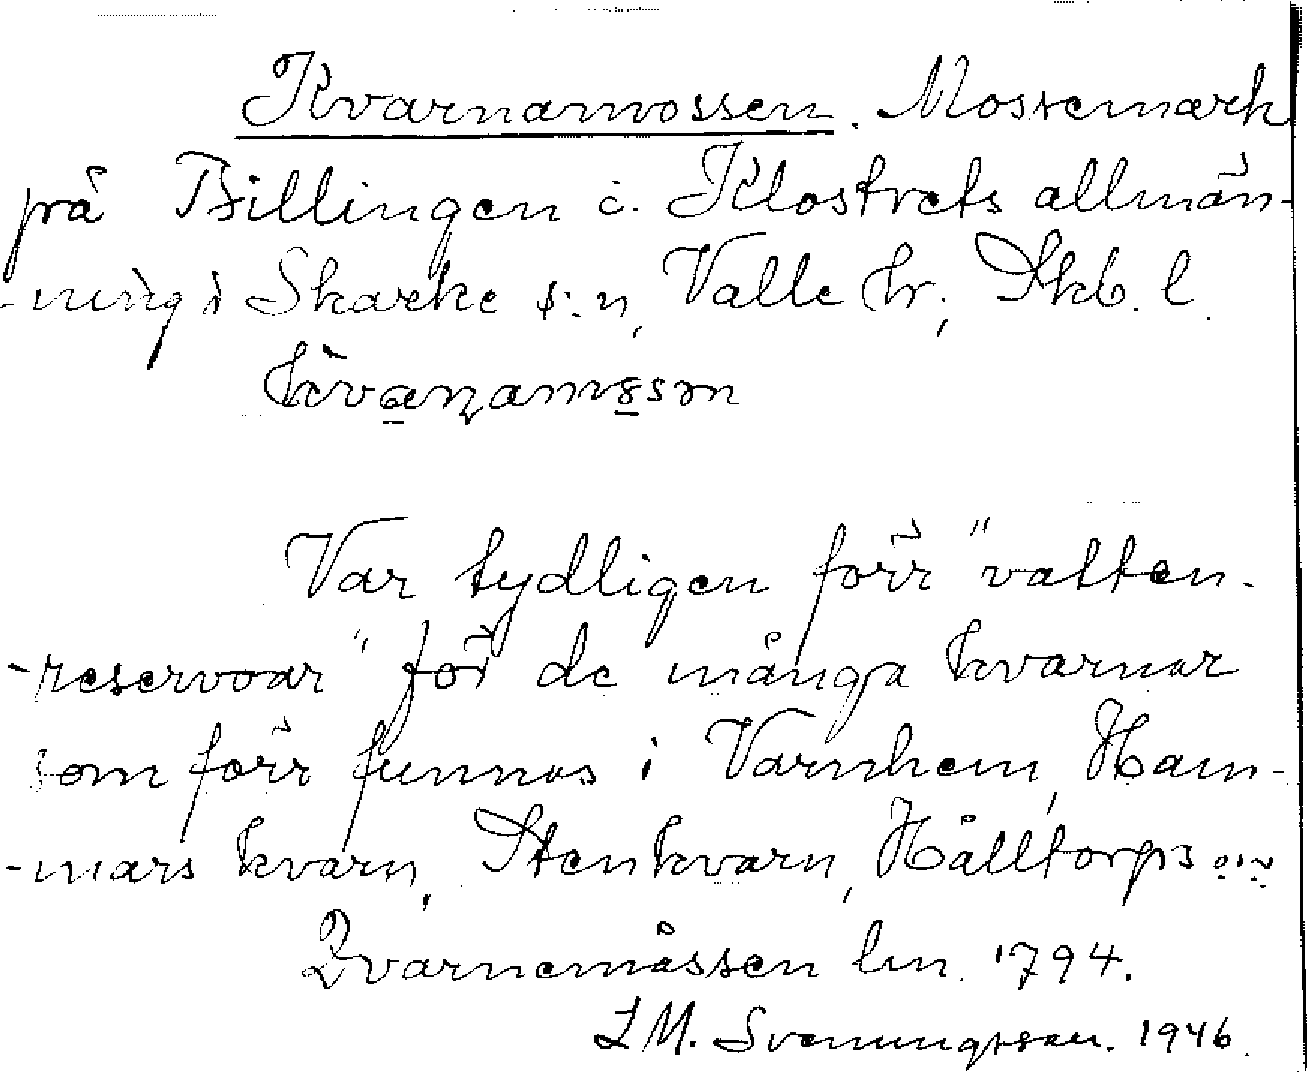 Kvarnamossen. Mossemark
på Billingen i. Klostrets allmän-
-ning i Skarke s:n, Valle hr, Skb. l.
Var tydligen förr "vatten-
-reservoar" för de många kvarnar
som förr funnos i Varnhem, Ham-
-mars kvarn, Stenkvarn, Hålltorps
Qvarnemåssen lm. 1794.
L M. Svenungsson. 1946.